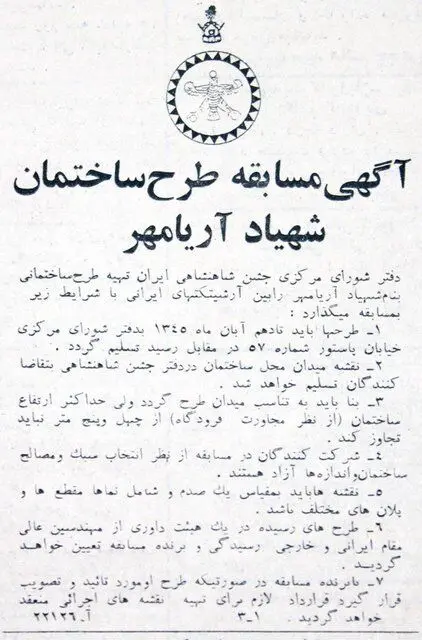 آگهی مسابقه طرح ساختمان
شهیاد آریامهر
دفتر شورای مرکزی جشن شاهنشاهی ایران تهیه طرح ساختمانی
بنام شهیاد آریامهر رابین آرشیتکتهای ایرانی با شرایط زیر
بمسابقه میگذارد :
۱ـ طرحها باید تا دهم آبان ماه ۱۳۴۵ بدفتر شورای مرکزی
خیابان پاستور شماره ۵۷ در مقابل رسید تسلیم گردد .
۲ـ نقشه میدان محل ساختمان دردفتر جشن شاهنشاهی بتقاضا
کنندگان تسلیم خواهد شد .
۳ـ بنا باید به تناسب میدان طرح گردد ولی حداکثر ارتفاع
ساختمان (از نظر مجاورت فرودگاه) از چهل وپنج متر نباید
تجاوز کند .
۴ـ شرکت کنندگان در مسابقه از نظر انتخاب سبک ومصالح
ساختمان واندازه‌ها آزاد هستند .
۵ـ نقشه هاباید بمقیاس یک صدم و شامل نماها مقطع ها و
پلان های مختلف باشد .
۶ـ طرح های رسیده در یک هیئت داوری از مهندسین عالی
مقام ایرانی و خارجی رسیدگی و برنده مسابقه تعیین خواهد
گردید .
۷ـ بابرنده مسابقه در صورتیکه طرح اومورد تائید و تصویب
قرار گیرد قرارداد لازم برای تهیه نقشه های اجرائی منعقد
خواهد گردید . ۱ـ۳ آـ۲۲۱۲۶